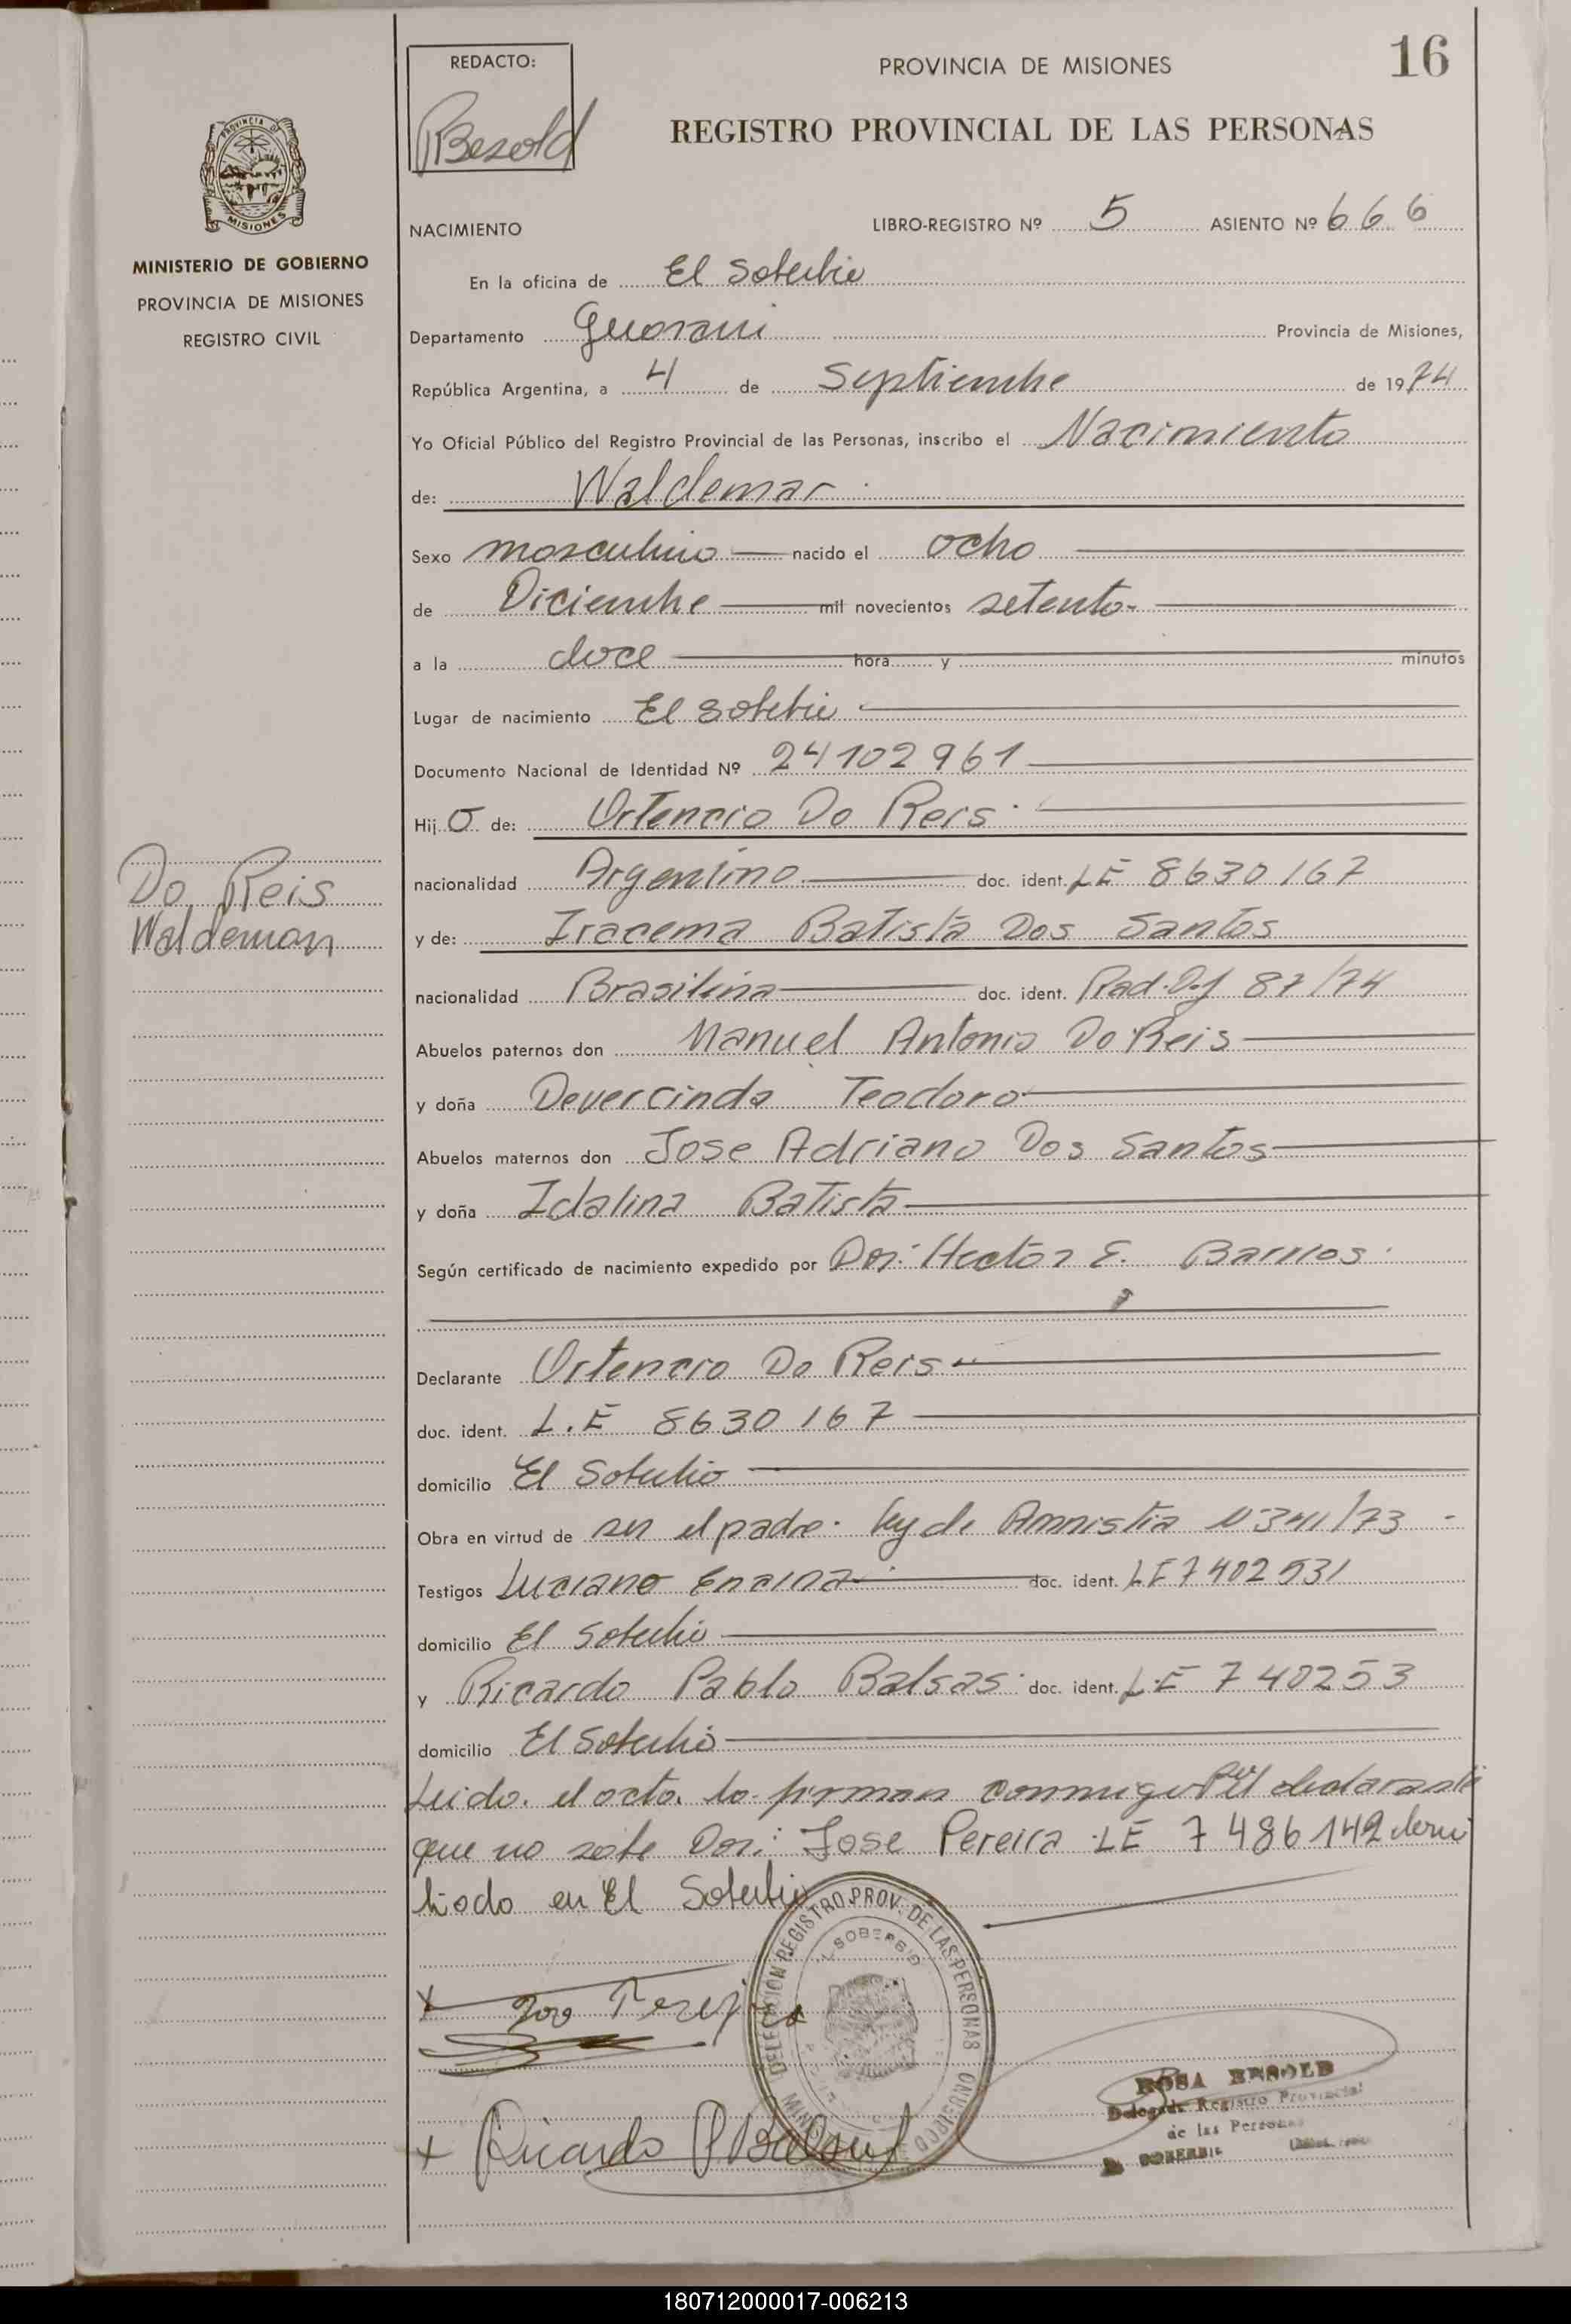 16
REDACTO:
RBesold
PROVINCIA DE MISIONES
REGISTRO PROVINCIAL DE LAS PERSONAS
PROVINCIA DE
MISIONES
MINISTERIO DE GOBIERNO
PROVINCIA DE MISIONES
REGISTRO CIVIL
NACIMIENTO
LIBRO-REGISTRO Nº 5 ASIENTO Nº 666
En la oficina de El Soberbio
Departamento Guarani Provincia de Misiones,
República Argentina, a 4 de Septiembre de 1974
Yo Oficial Público del Registro Provincial de las Personas, inscribo el Nacimiento
de: Waldemar
Sexo masculino nacido el ocho
de Diciembre mil novecientos setenta
a la doce hora y minutos
Lugar de nacimiento El Soberbio
Documento Nacional de Identidad Nº 24102961
Hijo de: Ortencio Do Reis
nacionalidad Argentino doc. ident. LE 8630167
Do Reis
Waldemar
y de: Iracema Batista Dos Santos
nacionalidad Brasilina doc. ident. 87/74
Abuelos paternos don Manuel Antonio Do Reis
y doña Devercinda Teodoro
Abuelos maternos don Jose Adriano Dos Santos
y doña Idalina Batista
Según certificado de nacimiento expedido por Don: Hector E. Barrios
Declarante Ortencio Do Reis
doc. ident. L.E 8630167
domicilio El Soberbio
Obra en virtud de ser el padre. Ley de Amnistia Nº 341/73
Testigos Luciano Encina doc. ident. LE 7402531
domicilio El Soberbio
y Ricardo Pablo Balsas doc. ident. L.E 740253
domicilio El Soberbio
Leido el acta la firman conmigo Por el declarante
que no sabe Don: Jose Pereira LE 7486142 domi
liado en El Soberbio
DELEGACION REGISTRO PROV. DE LAS PERSONAS
EL SOBERBIO
ROSA BESOLD
Delegada Registro Provincial
de las Personas
EL SOBERBIO
x
x Ricardo P Balsas
180712000017-006213